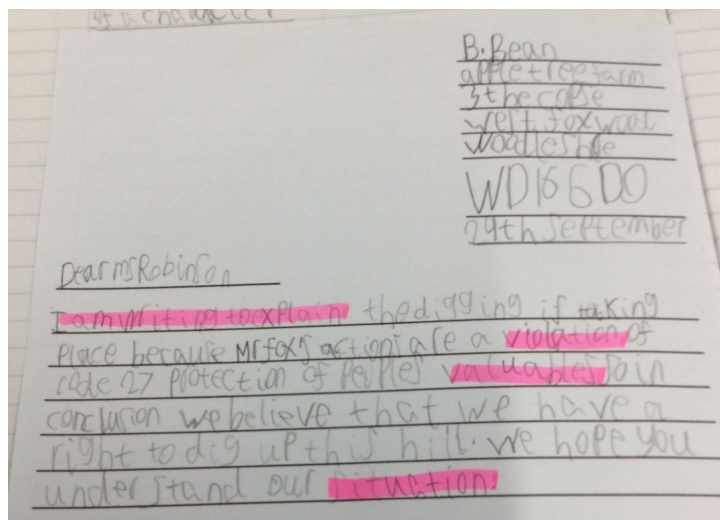 of a character
B. Bean
appletreefarm
3 the copse
west foxwood
WD16 6DO
29th September
Dear ms Robinson
I am writing to explain the digging if taking
place because Mr fox's actions are a violation of
code 27 protection of Peoples valuables so in
conclusion we believe that we have a
right to dig up this hill. we hope you
understand our situation.